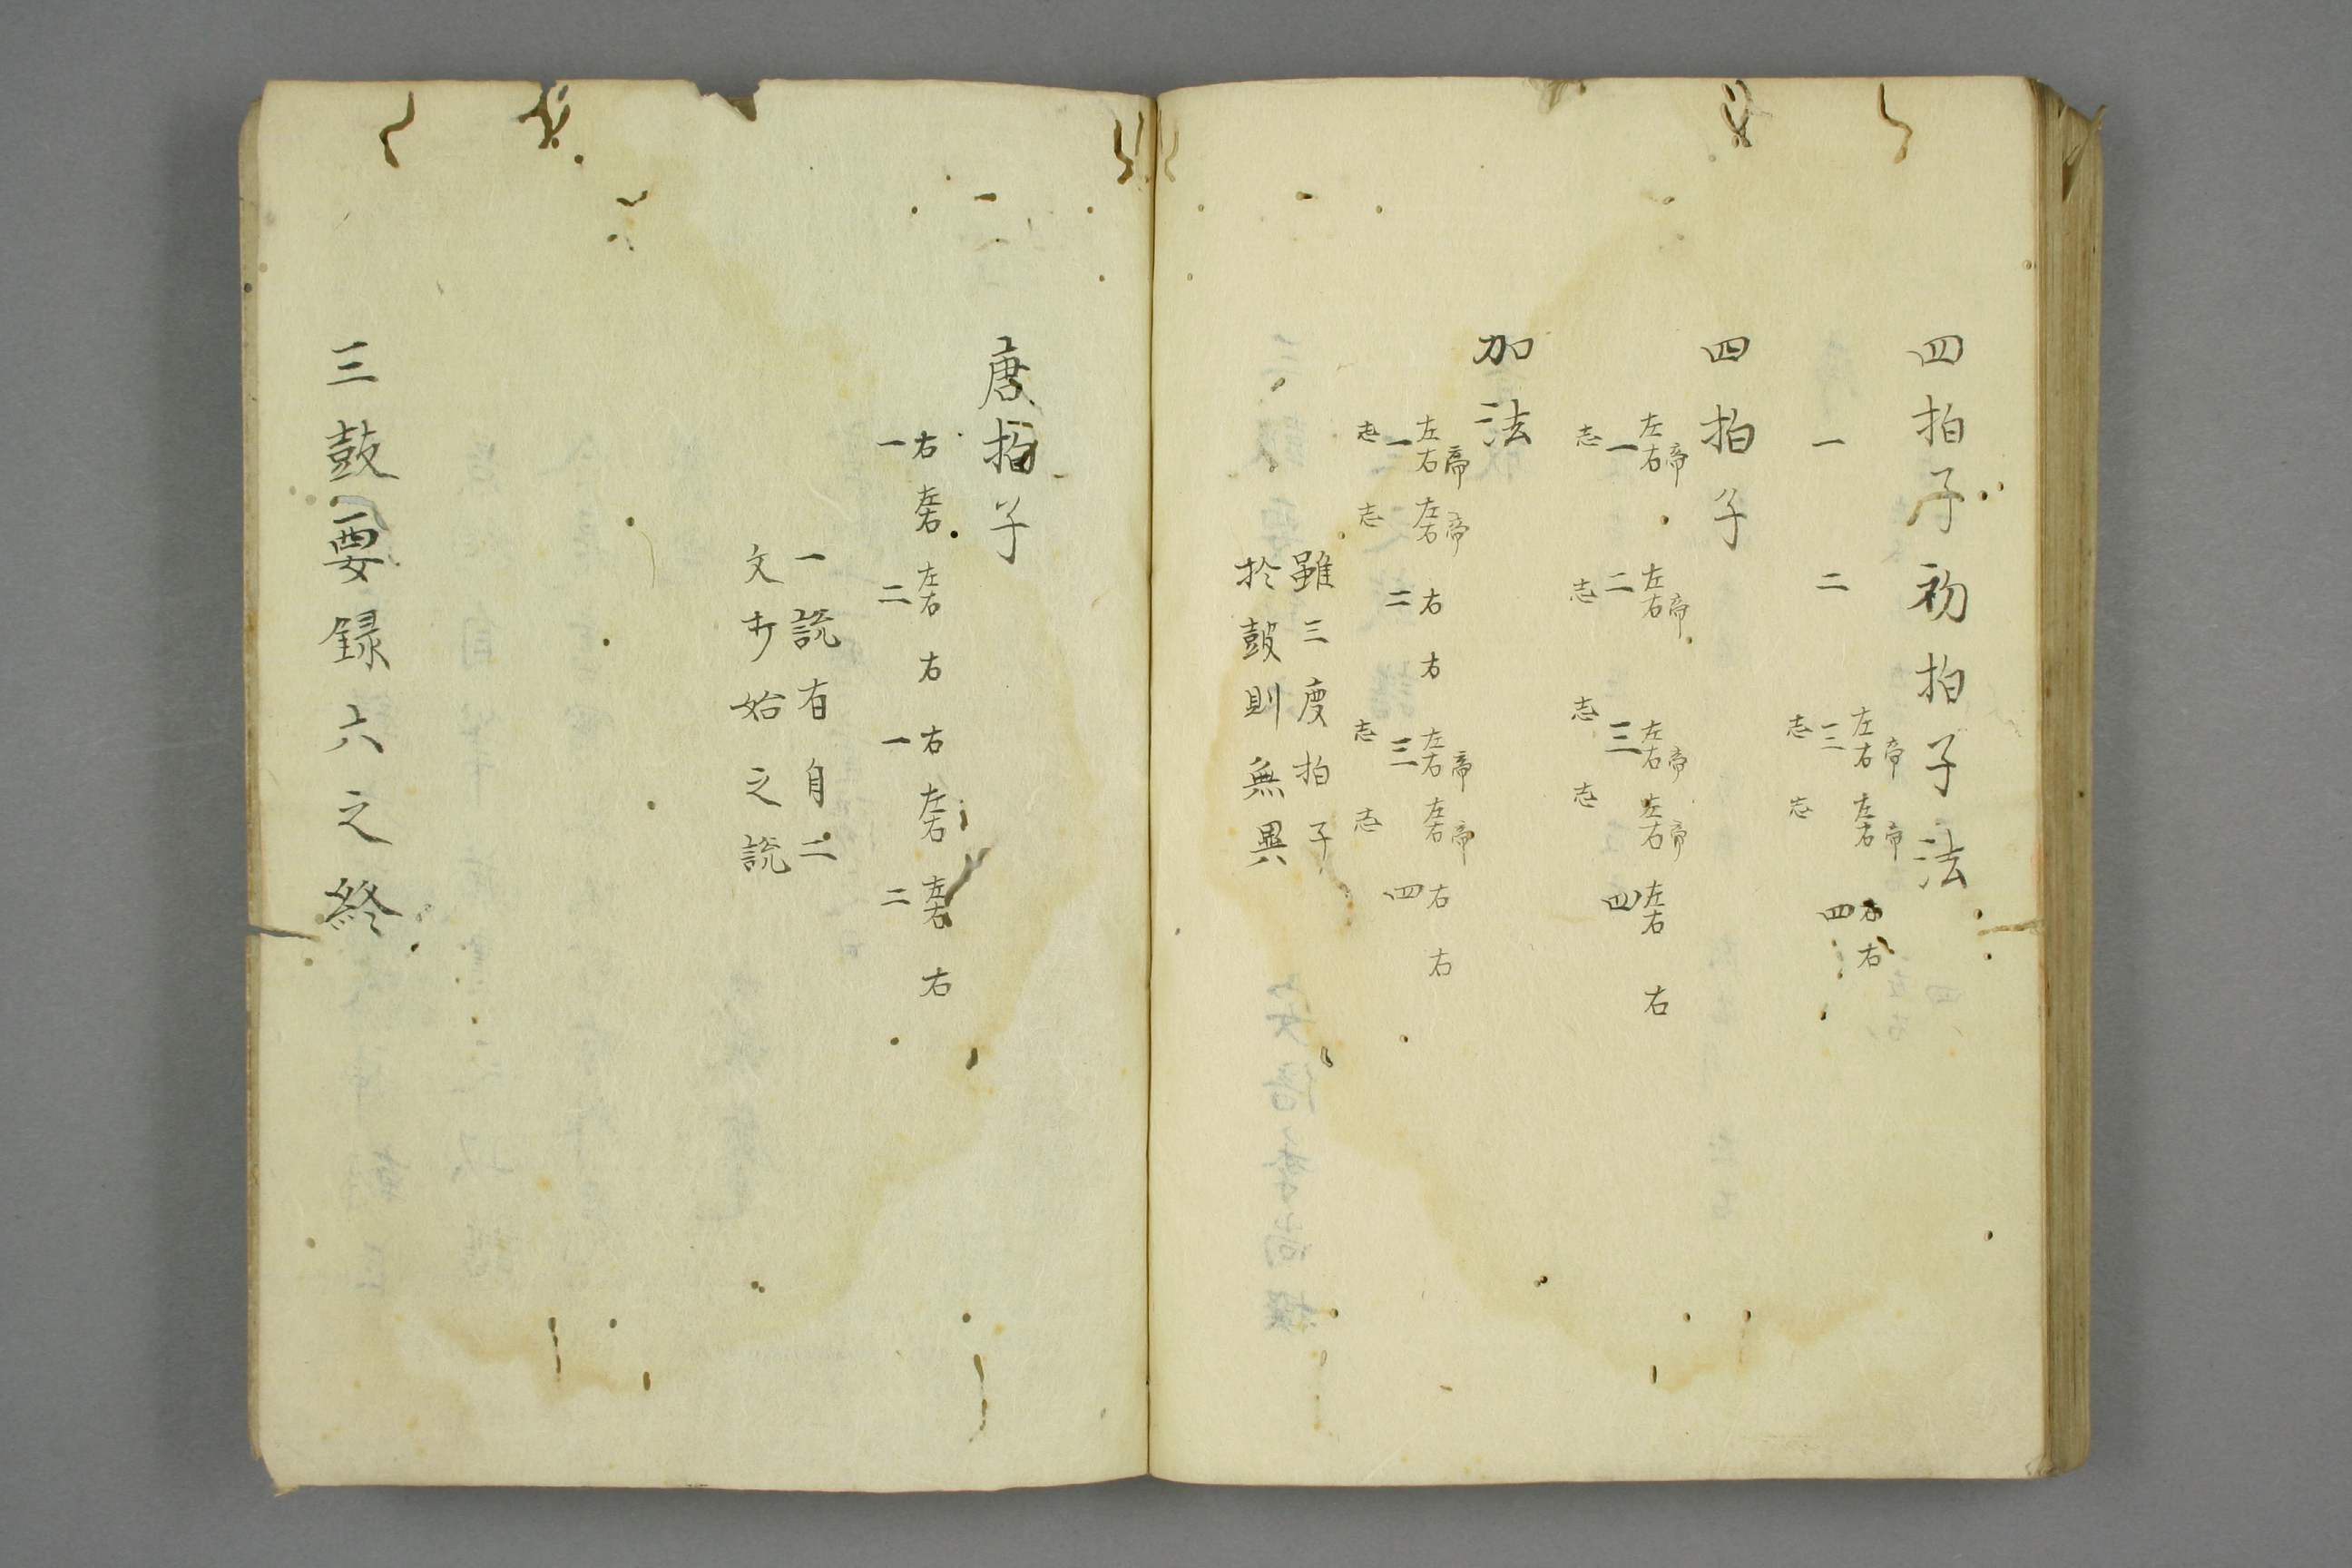 四拍子初拍子法
左右帝 左右帝 右 右
一 二 三 四
志 志
四拍子
左右帝 左右帝 左右帝 左右帝 左右 右
一 二 三 四
志 志 志 志
加法
左右帝 左右帝 右 右 左右帝 左右帝 右 右
一 二 三 四
志 志 志 志
雖三度拍子
於鼓則無異
唐拍子
右 左右 左右 右 右 左右 左右 右
一 二 一 二
一説有自二
文才始之説
三鼓要録六之終